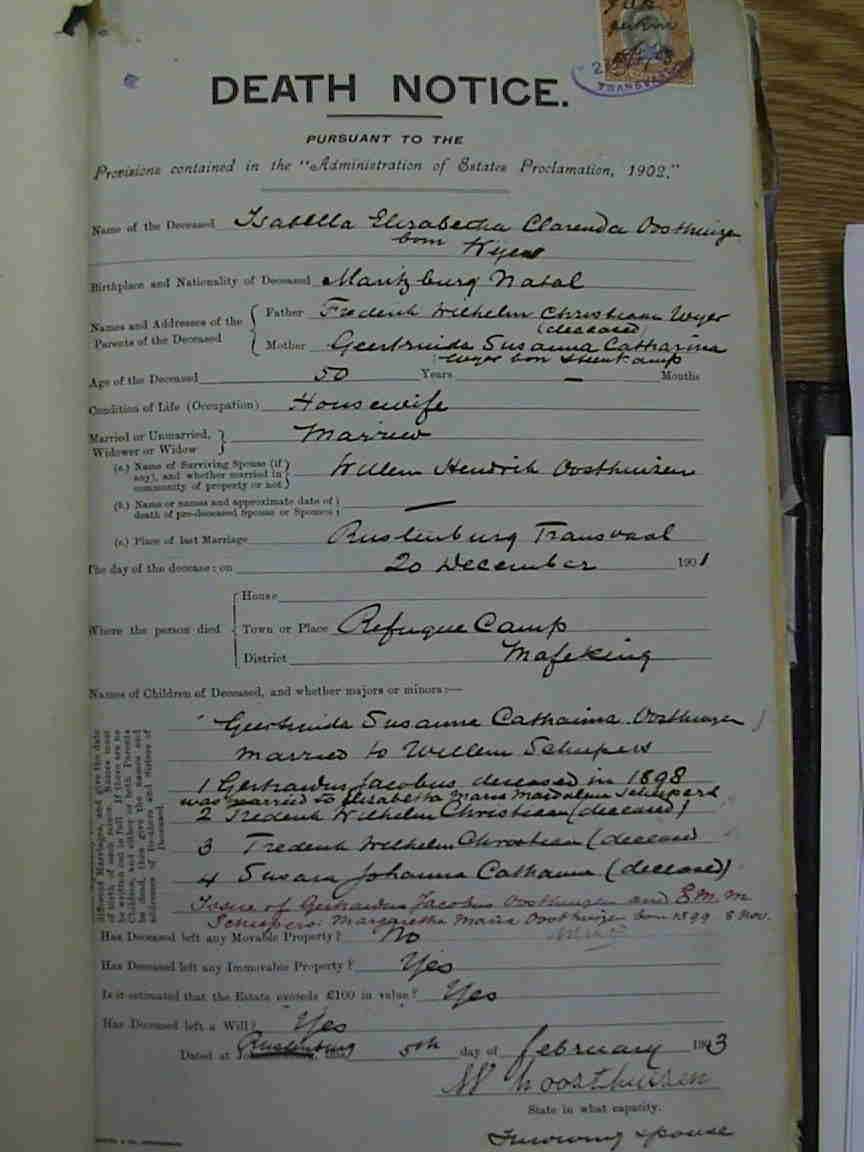 DEATH NOTICE.
PURSUANT TO THE
Provisions contained in the "Administration of Estates Proclamation, 1902."
Name of the Deceased Isabella Elizabetha Clarenda Oosthuizen
born Wyer
Birthplace and Nationality of Deceased Maritzburg Natal
Names and Addresses of the Parents of the Deceased
Father Frederik Wilhelm Christiaan Wyer
(deceased)
Mother Geertruida Susanna Catharina
Wyer born Steenkamp
Age of the Deceased 50 Years — Months
Condition of Life (Occupation) Housewife
Married or Unmarried, Widower or Widow Married
(a.) Name of Surviving Spouse (if any), and whether married in community of property or not Willem Hendrik Oosthuizen
(b.) Name or names and approximate date of death of pre-deceased Spouse or Spouses —
(c.) Place of last Marriage Rustenburg Transvaal
The day of the decease: on 20 December 1901
Where the person died
House
Town or Place Refugee Camp
District Mafeking
Names of Children of Deceased, and whether majors or minors:—
Geertruida Susanna Catharina Oosthuizen
married to Willem Scheepers
1 Gerhardus Jacobus deceased in 1898
was married to Elizabetha Maria Magdalena Scheepers
2 Frederik Wilhelm Christiaan (deceased)
3 Frederik Wilhelm Christiaan (deceased
4 Susara Johanna Catharina (deceased)
Issue of Gerhardus Jacobus Oosthuizen and E.M.M
Scheepers: Margaretha Maria Oosthuizen born 1899 8 Nov.
Has Deceased left any Movable Property? No
Has Deceased left any Immovable Property? Yes
Is it estimated that the Estate exceeds £100 in value? Yes
Has Deceased left a Will? Yes
Dated at Rustenburg 5th day of February 1903
W H Oosthuizen
State in what capacity.
Surviving spouse